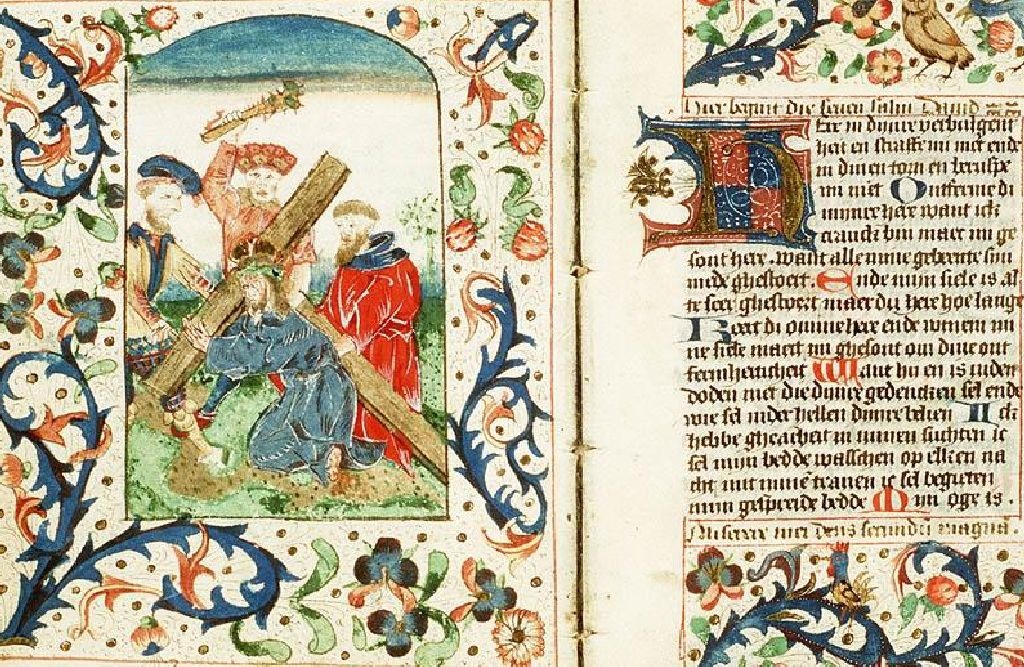 Hier begint die seven salm David
Here in dinre verbolgent
heit en straffe mi niet ende
in dinen torn en berispe
mi niet Ontferme di
minnre here want ick
cranck bin maect mi ge
sont here. want alle mine gebeente sin
mede ghestoert. Ende mijn siele is al
te seer ghestoert maer du here hoe lange
Keert di omme here ende verlent mi
ne siele maect mi ghesont om dine ont
fermherticheit Want hi en is inden
doden niet die dinre gedencken sel ende
wie sel inder hellen dinre belien Ick
hebbe ghearbeit in minen suchten ic
sel mijn bedde wasschen op elken na
cht mit mine tranen ic sel begieten
mijn gespreide bedde Mijn oge is.
Miserere mei deus secundū magnā.